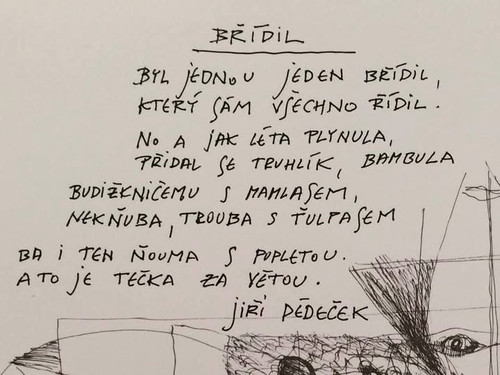 BŘÍDIL
BYL JEDNOU JEDEN BŘÍDIL,
KTERÝ SÁM VŠECHNO ŘÍDIL.
NO A JAK LÉTA PLYNULA,
PŘIDAL SE TRUHLÍK, BAMBULA
BUDIŽKNIČEMU S MAMLASEM,
NEKŇUBA, TROUBA S ŤULPASEM
BA I TEN ŇOUMA S POPLETOU.
A TO JE TEČKA ZA VĚTOU.
JIŘÍ DĚDEČEK